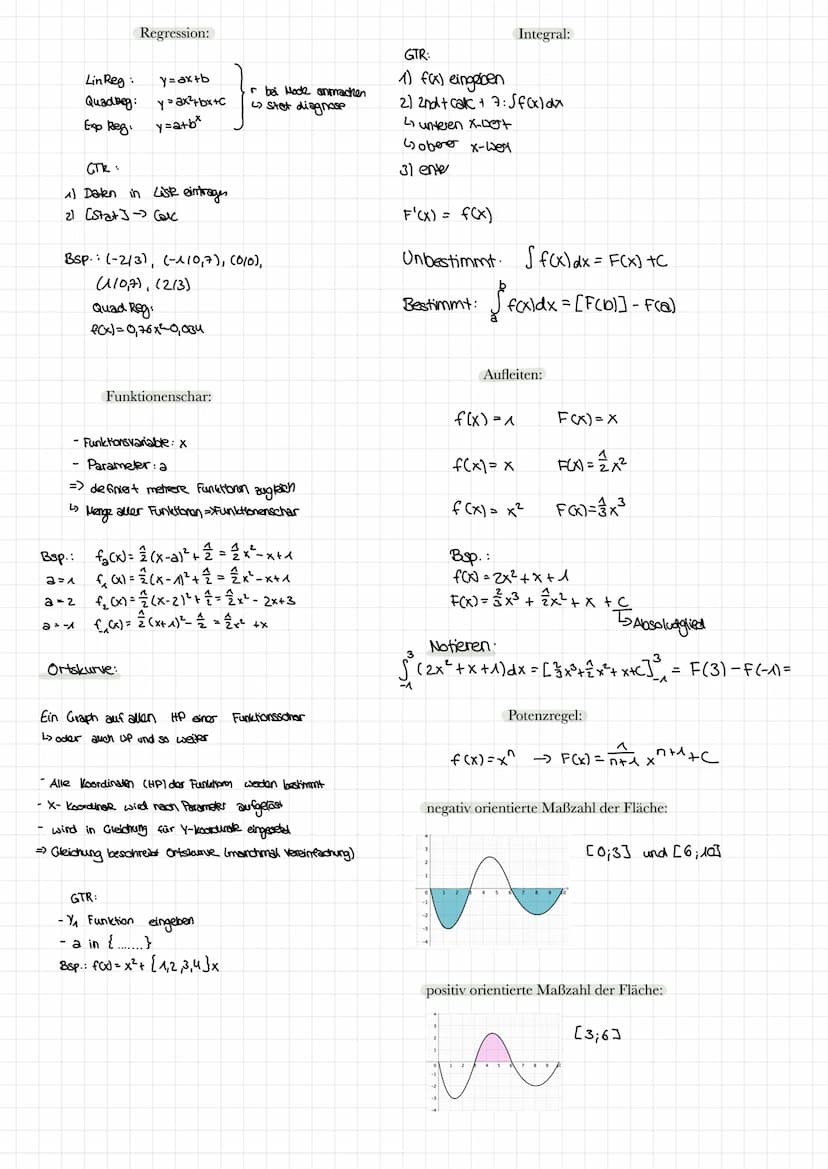 Regression:
LinReg: y=ax+b
QuadReg: y=ax²+bx+c
Exp Reg: y=a+bˣ
r bei Mode anmachen
↳ Stat diagnose
GTR:
1) Daten in Liste eintragen
2) [Stat] → Calc
Bsp.: (-2/3), (-1/0,7), (0/0),
(1/0,7), (2/3)
Quad Reg:
f(x)=0,76x²-0,034
Funktionenschar:
- Funktionsvariable: x
- Parameter: a
=> definiert mehrere Funktionen zugleich
↳ Menge aller Funktionen => Funktionenschar
Bsp.: fₐ(x)= 1/2 (x-a)² + 1/2 = 1/2 x² - x+1
a=1 f₁(x)= 1/2 (x-1)² + 1/2 = 1/2 x² - x+1
a=2 f₂(x)= 1/2 (x-2)² + 1/2 = 1/2 x² - 2x+3
a=-1 f₋₁(x)= 1/2 (x+1)² - 1/2 = 1/2 x² + x
Ortskurve:
Ein Graph auf allen HP einer Funktionsschar
↳ oder auch WP und so weiter
- Alle Koordinaten (HP) der Funktionen werden bestimmt
- X-Koordinate wird nach Parameter aufgelöst
- wird in Gleichung für Y-Koordinate eingesetzt
=> Gleichung beschreibt Ortskurve (manchmal Vereinfachung)
GTR:
- Y₁ Funktion eingeben
- a in {.......}
Bsp.: f(x) = x² + {1,2,3,4}x
Integral:
GTR:
1) f(x) eingeben
2) 2nd + calc + 7: ∫f(x)dx
↳ unteren x-Wert
↳ oberer x-Wert
3) enter
F'(x) = f(x)
Unbestimmt: ∫ f(x) dx = F(x) + C
Bestimmt: ∫ₐᵇ f(x)dx = [F(b)] - F(a)
Aufleiten:
f(x) = 1 F(x) = x
f(x) = x F(x) = 1/2 x²
f(x) = x² F(x) = 1/3 x³
Bsp.:
f(x) = 2x² + x + 1
F(x) = 2/3 x³ + 1/2 x² + x + C
↳ Absolutglied
Notieren:
∫₋₁³ (2x² + x + 1)dx = [2/3 x³ + 1/2 x² + x+C]₋₁³ = F(3) - F(-1) =
Potenzregel:
f(x) = xⁿ → F(x) = 1/(n+1) xⁿ⁺¹ + C
negativ orientierte Maßzahl der Fläche:
[0;3] und [6;10]
positiv orientierte Maßzahl der Fläche:
[3;6]